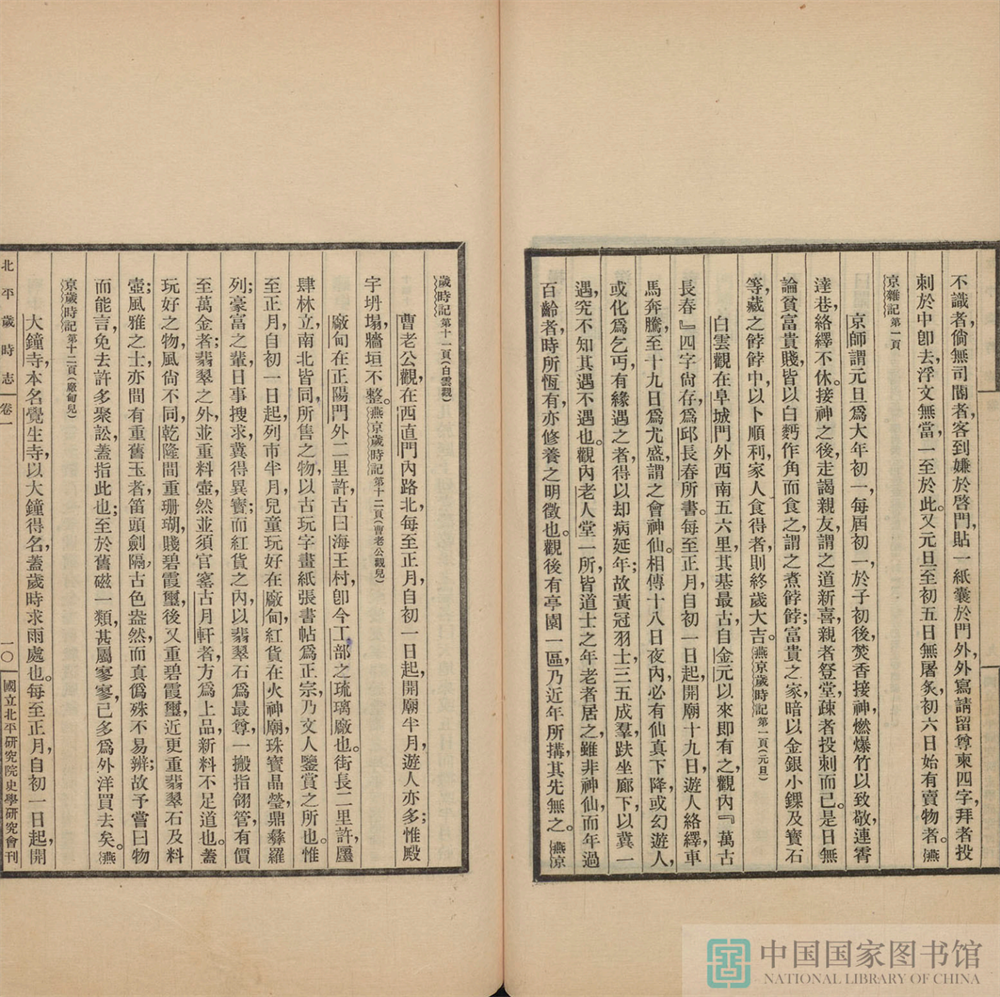 不識者，倘無司閽者，客到嫌於啓門，貼一紙囊於門外，外寫請留尊柬四字，拜者投
刺於中卽去，浮文無當，一至於此。又元旦至初五日無屠炙，初六日始有賣物者。燕
京雜記第一頁
京師謂元旦爲大年初一，每屆初一，於子初後，焚香接神，燃爆竹以致敬，連霄
達巷，絡繹不休。接神之後，走謁親友，謂之道新喜，親者登堂，疎者投刺而已。是日無
論貧富貴賤，皆以白麪作角而食之，謂之煮餑餑；富貴之家，暗以金銀小錁及寶石
等藏之餑餑中，以卜順利，家人食得者，則終歲大吉。燕京歲時記第一頁（元旦）
白雲觀在阜城門外西南五六里，其基最古，自金元以來卽有之，觀內『萬古
長春』四字尙存，爲邱長春所書。每至正月，自初一日起，開廟十九日，遊人絡繹，車
馬奔騰，至十九日爲尤盛，謂之會神仙。相傳十八日夜內，必有仙眞下降，或幻遊人，
或化爲乞丐，有緣遇之者，得以却病延年；故黃冠羽士，三五成羣，趺坐廊下，以冀一
遇，究不知其遇不遇也。觀內老人堂一所，皆道士之年老者居之，雖非神仙，而年過
百齡者，時所恆有，亦修養之明徵也。觀後有亭園一區，乃近年所搆，其先無之。燕京
歲時記第十一頁（白雲觀）
曹老公觀在西直門內路北，每至正月，自初一日起，開廟半月，遊人亦多；惟殿
宇坍塌，牆垣不整。燕京歲時記第十二頁（曹老公觀兒）
廠甸在正陽門外二里許，古曰海王村，卽今工部之琉璃廠也。街長二里許，廛
肆林立，南北皆同，所售之物，以古玩字畫紙張書帖爲正宗，乃文人鑒賞之所也。惟
至正月，自初一日起，列市半月，兒童玩好在廠甸，紅貨在火神廟，珠寶晶瑩，鼎彝羅
列；豪富之輩，日事搜求，冀得異寶；而紅貨之內，以翡翠石爲最尊，一搬指翎管，有價
至萬金者；翡翠之外，並重料壺，然並須官窰古月軒者，方爲上品，新料不足道也。蓋
玩好之物，風尙不同，乾隆間重珊瑚，賤碧霞璽，後又重碧霞璽，近更重翡翠石及料
壺，風雅之士，亦間有重舊玉者，笛頭劍隔，古色盎然，而眞僞殊不易辨；故予嘗曰物
而能言，免去許多聚訟，蓋指此也；至於舊磁一類，甚屬寥寥，已多爲外洋買去矣。燕
京歲時記第十二頁（廠甸兒）
大鐘寺本名覺生寺，以大鐘得名，蓋歲時求雨處也。每至正月，自初一日起，開
北平歲時志 卷一 一〇 國立北平研究院史學研究會刊
中国国家图书馆
NATIONAL LIBRARY OF CHINA